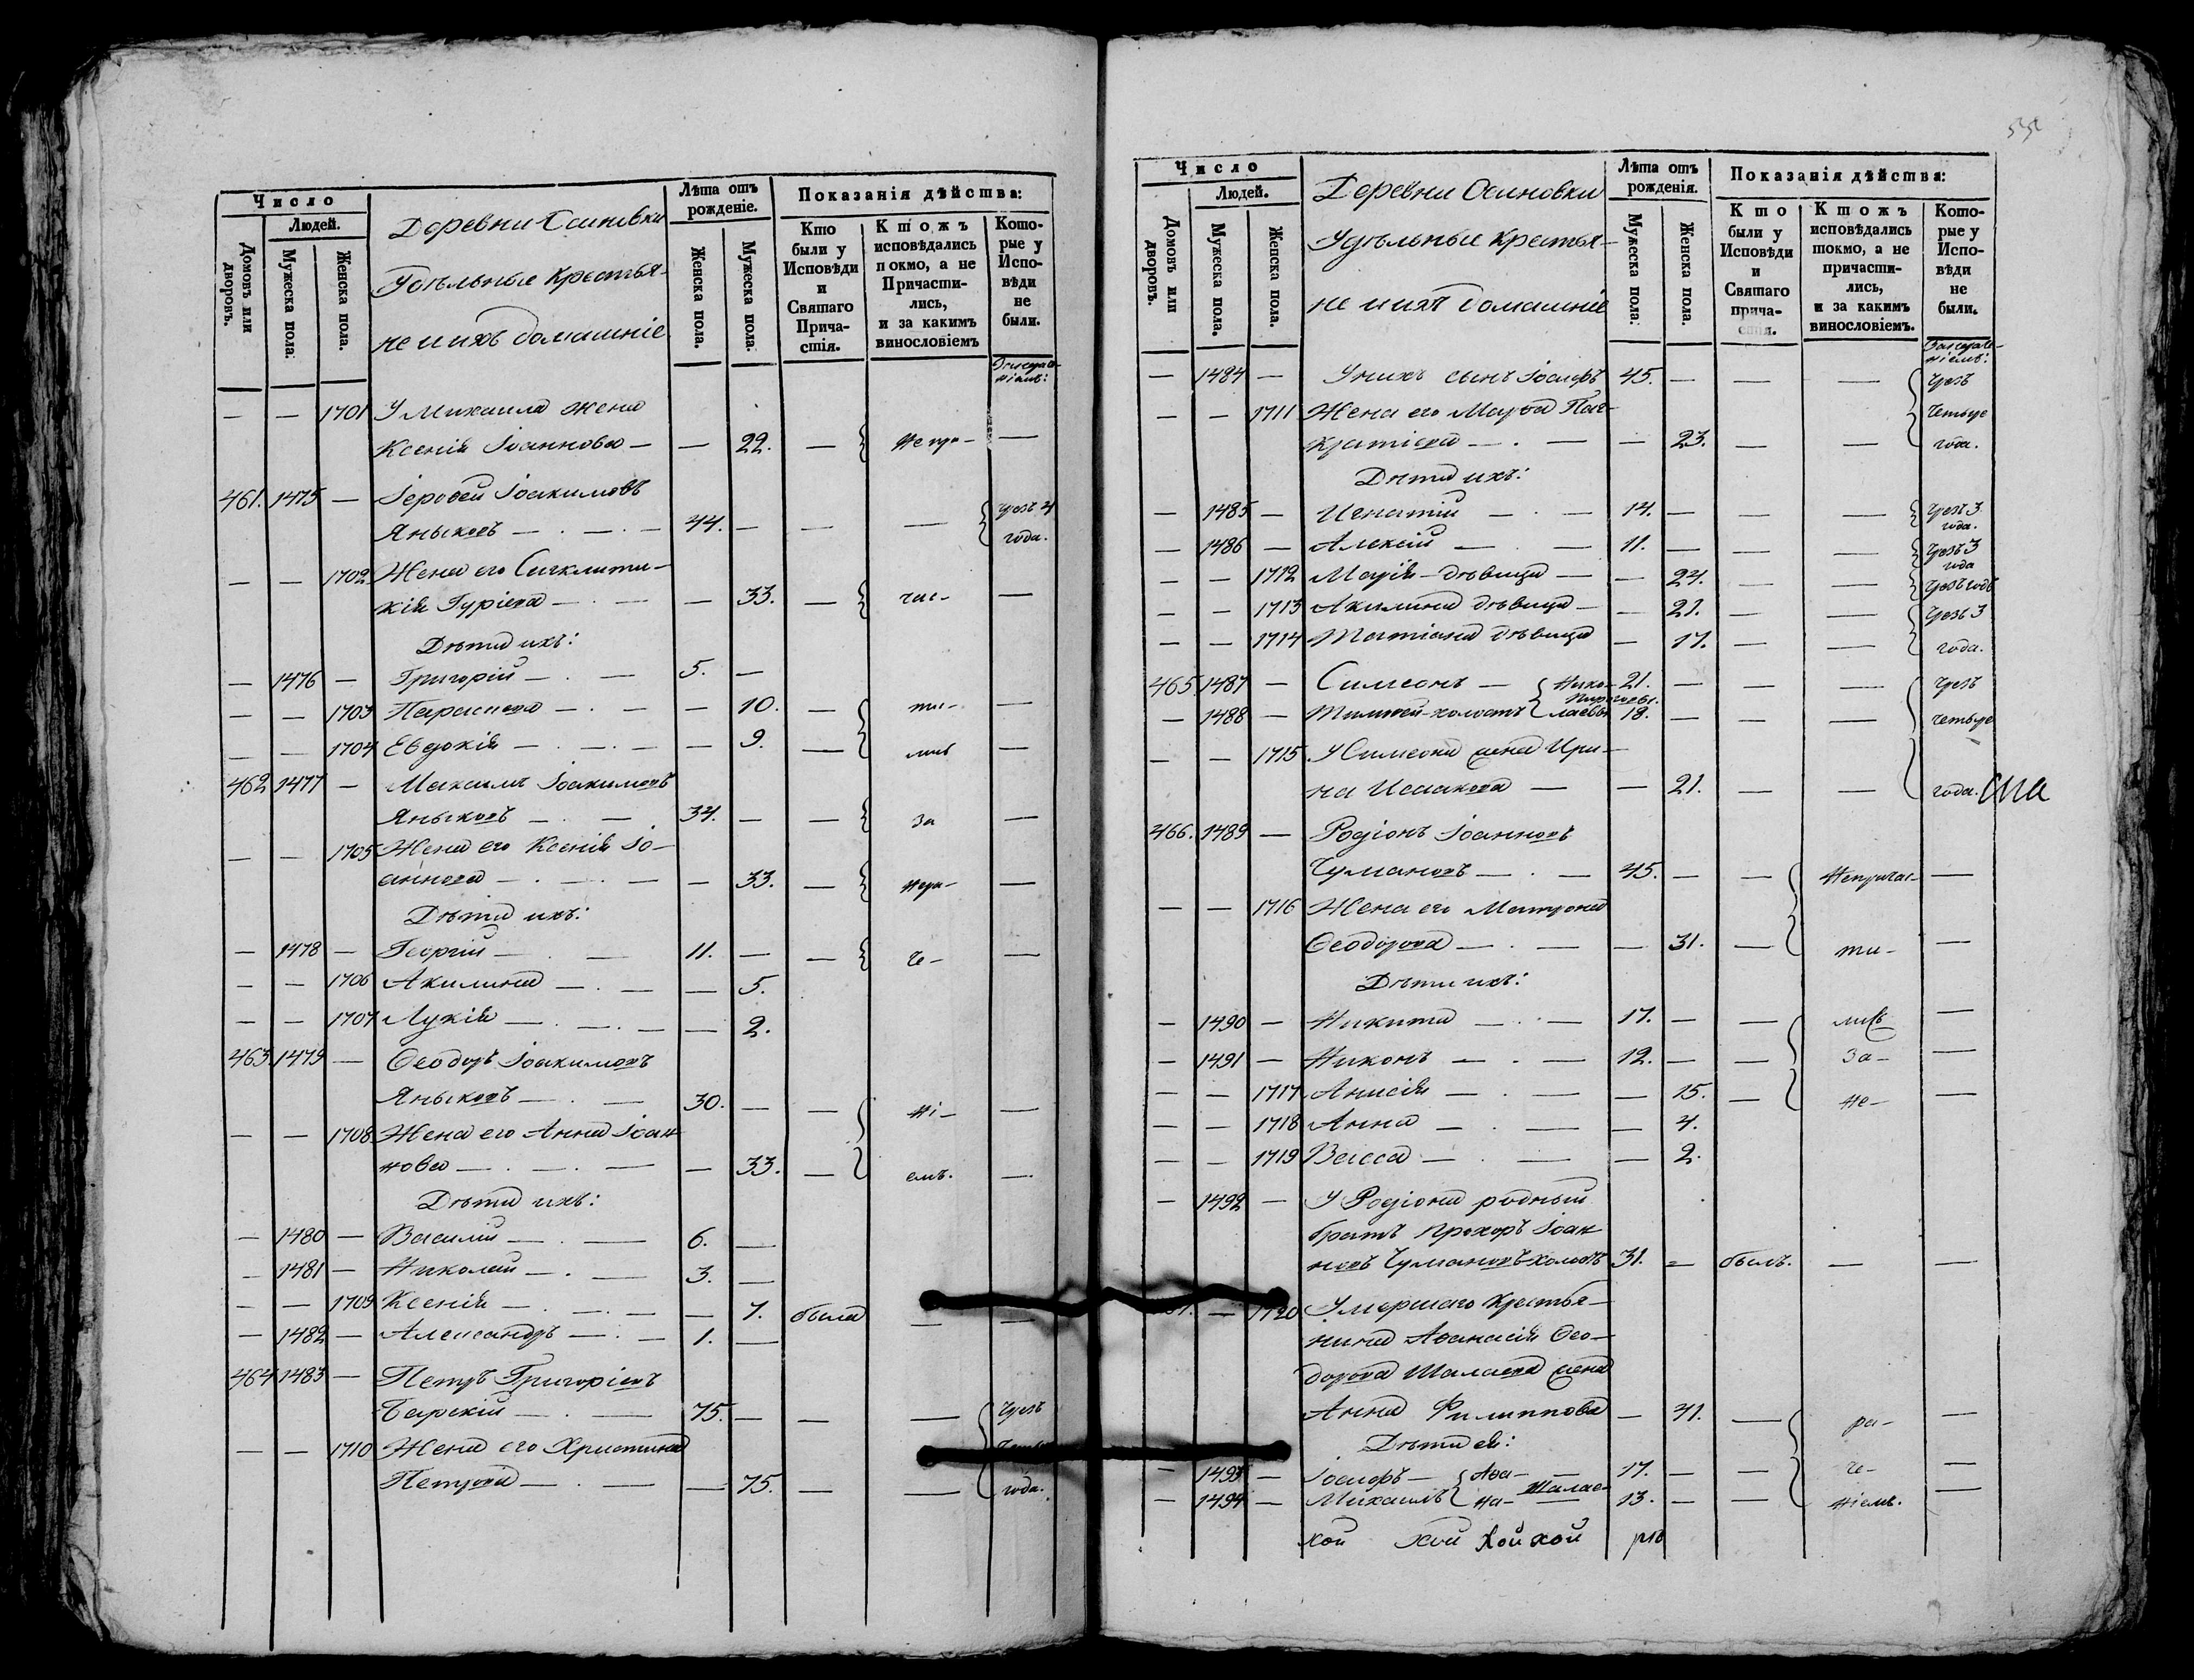 Число
Людей.
Домовъ или дворовъ.
Мужеска пола:
Женска пола.
Деревни Осиновки
Удѣльные Крестья-
не и ихъ домашніе
Лѣта отъ
рожденіе.
Женска пола.
Мужеска пола:
Показанія дѣйства:
Кто
были у
Исповѣди
и
Святаго
Прича-
стія.
Ктожъ
исповѣдались
покмо, а не
Причасти-
лись,
и за какимъ
винословіемъ
Кото-
рые у
Испо-
вѣди
не
были.
— — 1701 У Михаила жена
Ксенія Іоаннова — — 22. — Не при- —
461. 1475 — Іеровей Іоакимовъ
Яныковъ — 44. — — — чрезъ 4
года.
— — 1702 Жена его Сигклити-
кія Гуріева — — 33. — час- —
Дѣти ихъ:
— 1476 — Григорій — 5. —
— — 1703 Параскева — — 10. — ти- —
— — 1704 Евдокія — — 9. — лись —
462 1477 — Максимъ Іоакимовъ
Яныковъ — 34. — — За —
— — 1705 Жена его Ксенія Іо-
аннова — — 33. — нера- —
Дѣти ихъ:
— 1478 — Георгій — 11. — — че- —
— — 1706 Акилина — — 5.
— — 1707 Лукія — — 2.
463. 1479 — Ѳеодоръ Іоакимовъ
Яныковъ — 30. — — ні- —
— — 1708 Жена его Анна Іоан-
нова — — 33. — емъ. —
Дѣти ихъ:
— 1480 — Василій — 6. —
— 1481 — Николай — 3. —
— — 1709 Ксенія — — 7. была — —
— 1482 — Александръ — 1. —
464 1483 — Петръ Григоріевъ
Барскій — 75. — — — чрезъ
— — 1710 Жена его Христина
Петрова — — 75. — — года.
Число
Людей.
Домовъ или дворовъ.
Мужеска пола.
Женска пола.
Деревни Осиновки
Удѣльные Крестья-
не и ихъ домашніе
Лѣта отъ
рожденія.
Мужеска пола:
Женска пола.
Показанія дѣйства:
Кто
были у
Исповѣди
и
Святаго
прича-
стія.
Ктожъ
исповѣдались
токмо, а не
причасти-
лись,
и за какимъ
винословіемъ.
Кото-
рые у
Испо-
вѣди
не
были.
— 1484 — У нихъ сынъ Іосифъ 45. — — — чрезъ
— — 1711 Жена его Марѳа Пан- четыре
кратіева — — 23. — — года.
Дѣти ихъ:
— 1485 — Игнатій — 14. — — — чрезъ 3
года.
— 1486 — Алексій — 11. — — — чрезъ 3
года
— — 1712 Марія дѣвица — — 24. — — чрезъ годъ
— — 1713 Акилина дѣвица — — 21. — — чрезъ 3
— — 1714 Татіана дѣвица — 17. — — года.
465 1487 — Симеонъ — Нико- 21. — — — чрезъ
— 1488 — Тимоѳей холостъ лаевы 18. — — — четыре
— — 1715 У Симеона жена Ири-
на Исаакова — — 21. — — года.
466. 1489 — Родіонъ Іоанновъ
Чумановъ — 45. — — Непричас- —
— — 1716 Жена его Матрона
Ѳеодорова — — 31. — ти- —
Дѣти ихъ:
— 1490 — Никита — 17. — — лись —
— 1491 — Никонъ — 12. — — За- —
— — 1717 Анисія — — 15. — не- —
— — 1718 Анна — — 4.
— — 1719 Васса — — 2.
— 1492 — У Родіона родный
братъ Прохоръ Іоан-
новъ Чумановъ холостъ 31. — былъ. — —
— 1720 Умершаго Крестья-
нина Аѳанасія Ѳео-
дорова Шалаева жена
Анна Филиппова — 41. — ра- —
Дѣти ея:
— 1493 — Іосифъ — Аѳа- 17. — — че- —
— 1494 — Михаилъ на- Шалае- 13. — — ніемъ. —
кой кой кой кой